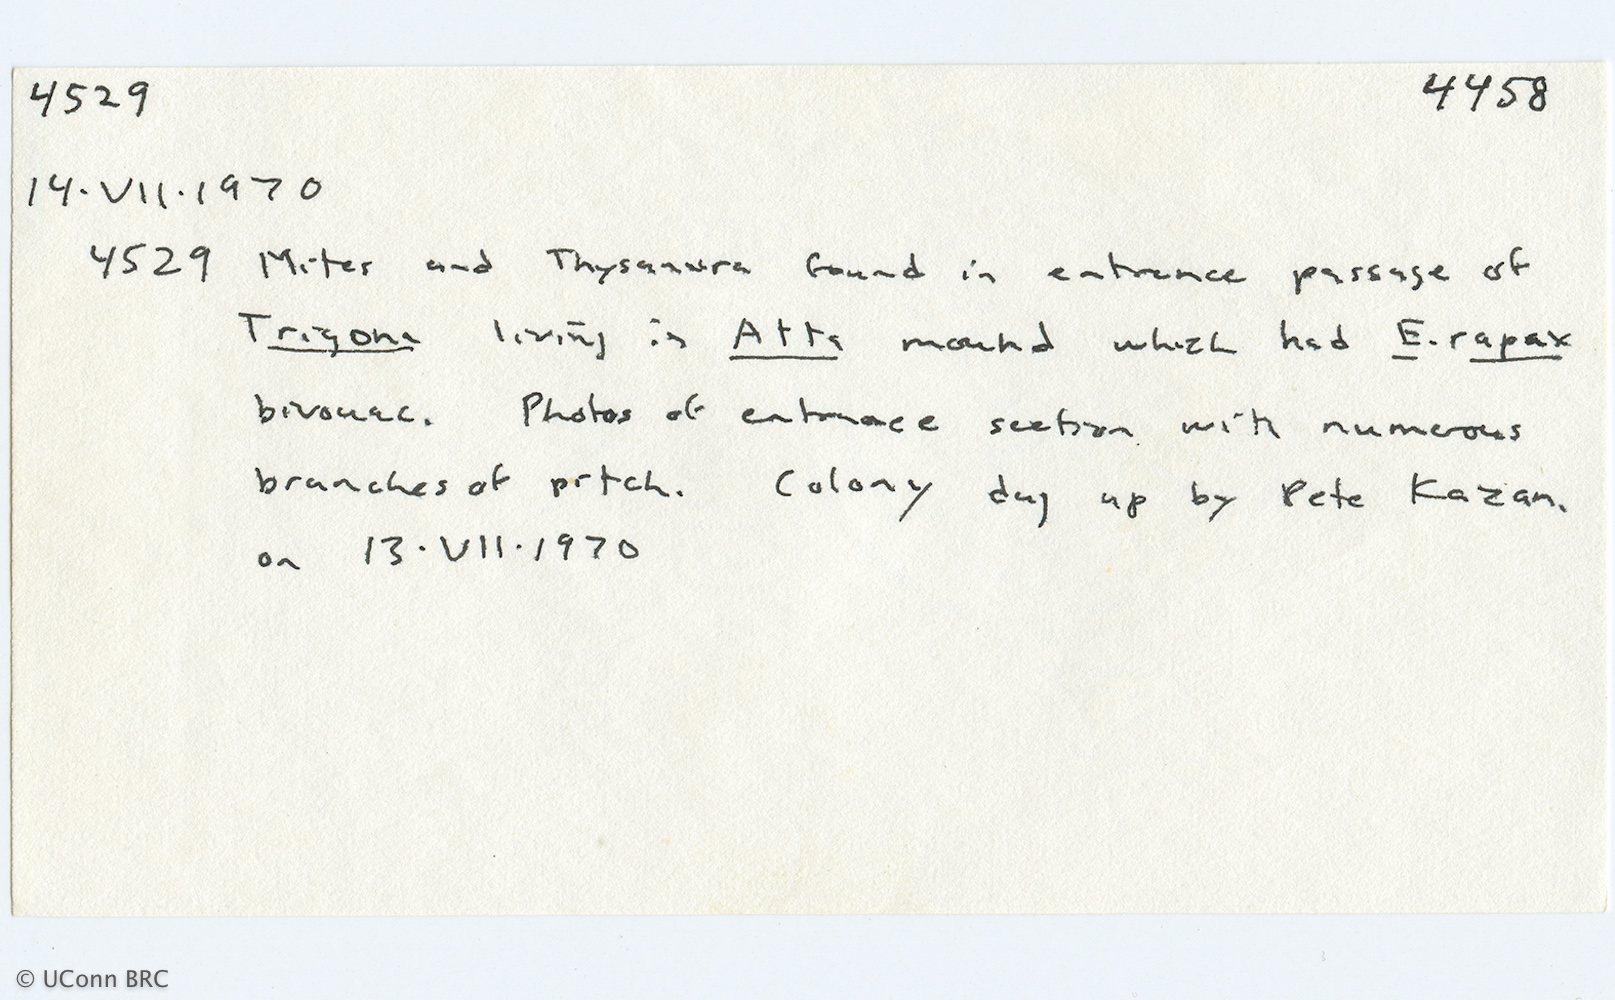 4529 4458
14·VII·1970
4529 Mites and Thysanura found in entrance passage of
Trigona living in Atta mound which had E. rapax
bivouac. Photos of entrance section with numerous
branches of pitch. Colony dug up by Pete Kazan.
on 13·VII·1970
© UConn BRC